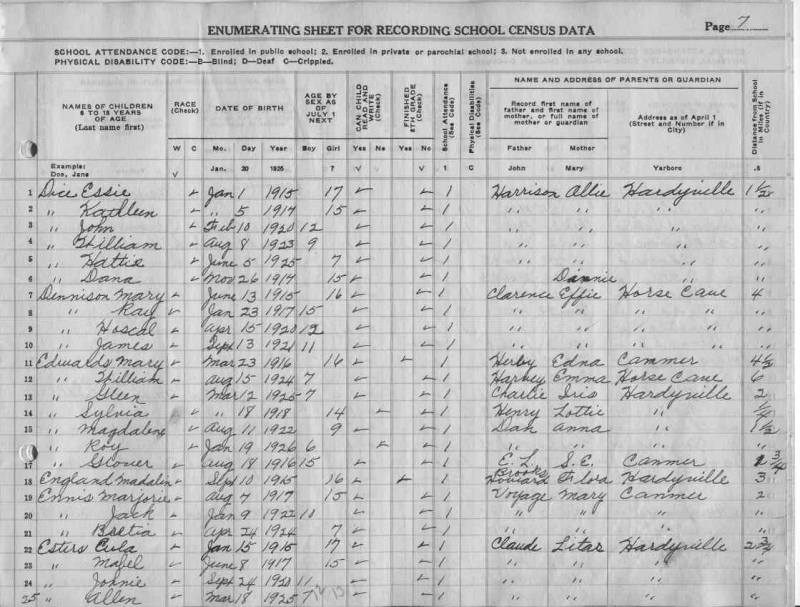 Page 7
ENUMERATING SHEET FOR RECORDING SCHOOL CENSUS DATA
SCHOOL ATTENDANCE CODE:—1. Enrolled in public school; 2. Enrolled in private or parochial school; 3. Not enrolled in any school.
PHYSICAL DISABILITY CODE:—B—Blind; D—Deaf C—Crippled.
NAMES OF CHILDREN 6 TO 18 YEARS OF AGE (Last name first) RACE (Check) DATE OF BIRTH AGE BY SEX AS OF JULY 1 NEXT CAN CHILD READ AND WRITE (Check) FINISHED 8TH GRADE (Check) School Attendance (See Code) Physical Disabilities (See Code) NAME AND ADDRESS OF PARENTS OR GUARDIAN Distance from School in Miles (if in Country)
Record first name of father and first name of mother, or full name of mother or guardian Address as of April 1 (Street and Number if in City)
W C Mo. Day Year Boy Girl Yes No Yes No Father Mother
Example: Doe, Jane V Jan. 20 1925 7 V V 1 C John Mary Yarboro .5
1 Dice Essie ✓ Jan 1 1915 17 ✓ ✓ 1 Harrison Allie Hardyville 1 1/2
2 " Kathleen ✓ " 5 1917 15 ✓ ✓ 1 " " " "
3 " John ✓ Feb 10 1920 12 ✓ ✓ 1 " " " "
4 " William ✓ Aug 8 1923 9 ✓ ✓ 1 " " " "
5 " Hattie ✓ June 5 1925 7 ✓ ✓ 1 " " " "
6 " Dana ✓ Nov 26 1917 15 ✓ ✓ 1 " Dannie " "
7 Dennison Mary ✓ June 13 1915 16 ✓ ✓ 1 Clarence Effie Horse Cave 4
8 " Ray ✓ Jan 23 1917 15 ✓ ✓ 1 " " " " "
9 " Hoscal ✓ Apr 15 1920 12 ✓ ✓ 1 " " " " "
10 " James ✓ Sept 13 1921 11 ✓ ✓ 1 " " " " "
11 Edwards Mary ✓ Mar 23 1916 16 ✓ ✓ 1 Herby Edna Canmer 4 1/2
12 " William ✓ Aug 15 1924 7 ✓ ✓ 1 Harvey Emma Horse Cave 6
13 " Gleen ✓ Mar 12 1925 7 ✓ ✓ 1 Charlie Iris Hardyville 2
14 " Sylvia ✓ " 18 1918 14 ✓ ✓ 1 Henry Lottie "
15 " Magdalene ✓ Aug 11 1922 9 ✓ ✓ 1 Dan Anna " 1 1/2
16 " Roy ✓ Jan 19 1926 6 ✓ ✓ 1 " " " "
17 " Glover ✓ Aug 18 1916 15 ✓ ✓ 1 E. L. S. E. Canmer 3/4
18 England Madalin ✓ Sept 10 1915 16 ✓ ✓ 1 Brooks Howard Flora Hardyville 3
19 Ennis Marjorie ✓ Aug 7 1917 15 ✓ ✓ 1 Voyage Mary Canmer 2
20 " Jack ✓ Jan 9 1922 10 ✓ ✓ 1 " " " "
21 " Bretia ✓ Apr 24 1924 7 ✓ ✓ 1 " " " "
22 Esters Eula ✓ Jan 15 1915 17 ✓ ✓ 1 Claude Litar Hardyville 2 3/4
23 " Mabel ✓ June 8 1917 15 ✓ ✓ 1 " " " "
24 " Johnie ✓ Sept 24 1920 11 ✓ ✓ 1 " " " "
25 " Allen ✓ Mar 18 1925 7 ✓ ✓ 1 " " " "